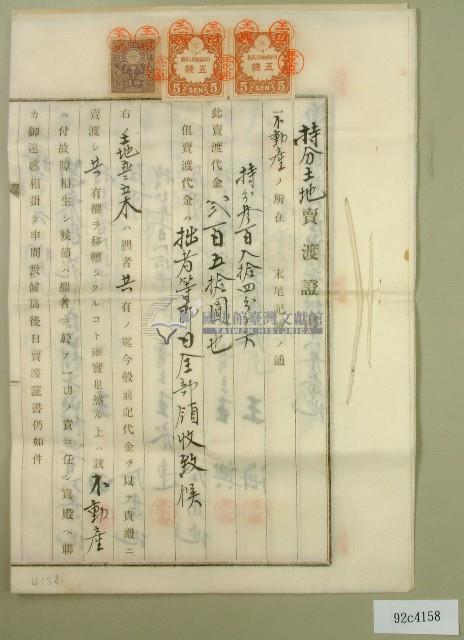 持分土地賣渡證
一不動産ノ所在　末尾記
ノ通
持分參百八拾四分ノ六
此賣渡代金　貳百五拾圓也
但賣渡代金ハ拙者等
日全部領收致候
右土地
ハ拙者共有ノ處今般前記代金ヲ以テ貴殿ニ
賣渡シ共有權ヲ移轉シタルコト確實也然ル上ハ該不動産
ニ付故障相生シ候節ハ拙者ニ於テ一切ノ責ニ任シ貴殿ヘ聊
カ御迷惑相掛ケ申間敷候爲後日賣渡証書仍如件
五錢
5 SEN 5
五錢
5 SEN 5
國史館臺灣文獻館
TAIWAN HISTORICA
4158
92c4158